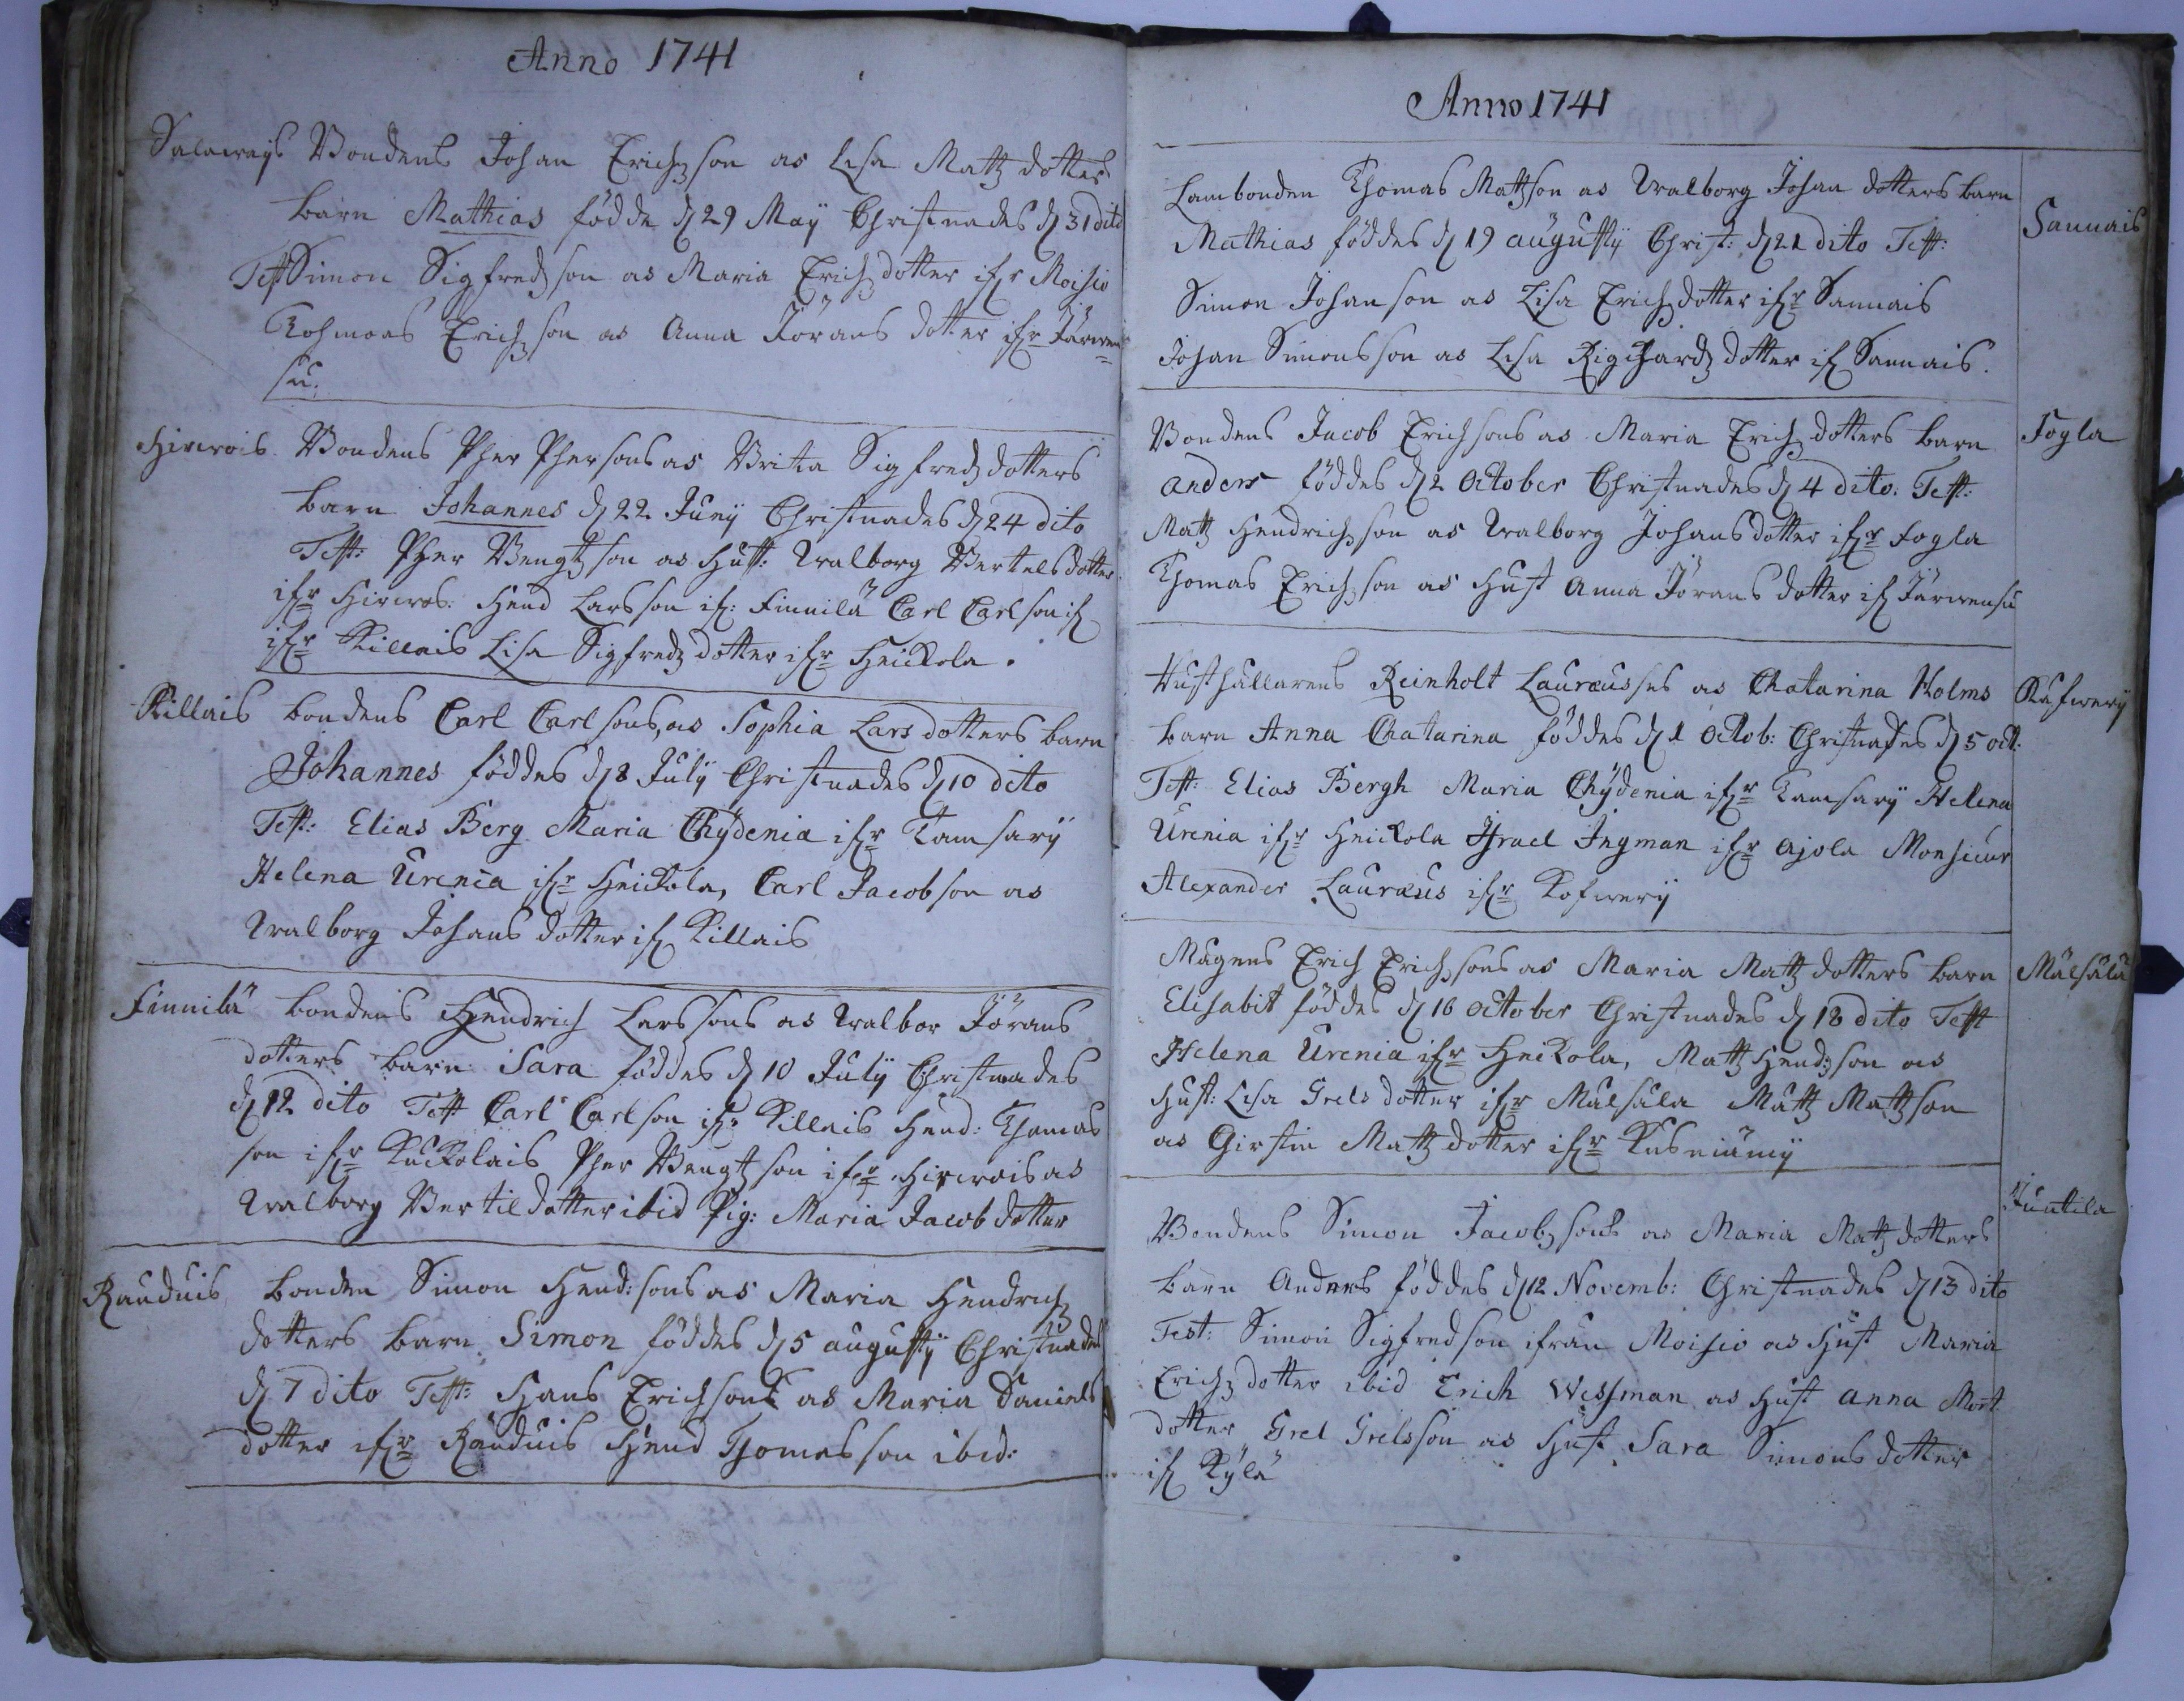 Anno 1741
Salawais Bondens Johan Erichson as Lisa Matz dotters
barn Mathias födde d 29 Maÿ Christnades d 31 dito
Test Simon Sigfredson as Maria Erichdotter ifr Moisio
Erichson as Anna Jörans dotter ifr Järwen=
su.
Hirwois Bondens Pher Phersons as Britta Sigfredz dotters
barn Johannes d 22 Junÿ Christnades d 24 dito
Test: Pher Bengtson as Hust: Walborg Bertelsdotter
ifr Hirwos: Hend Larsson if: Finnilä Carl Carlson if
ifr Killais Lisa Sigfredz dotter ifr Heickola.
Killais bondens Carl Carlsons as Sophia Larsdotters barn
Johannes föddes d 8 Julÿ Christnades d 10 dito
Test: Elias Berg Maria Chÿdenia ifr Tamsarÿ
Helena Urenia ifr Heickola, Carl Jacobson as
Walborg Johans dotter if Killais
Finnilä bondens Hendrich Larssons as Walbor Jörans
dotters barn Sara föddes d 10 Julÿ Christnades
d 12 dito Test Carl Carlson ifr Killais Hend: Thomas
son ifr Kuckolais Pher Bengtson ifr Hirwois as
Walborg Bertildotter ibid Pig: Maria Jacobdotter
Rauduis bonden Simon Hend:sons as Maria Hendrich
dotters barn Simon föddes d 5 augustÿ Christnades
d 7 dito Test: Hans Erichsons as Maria Daniels
dotter ifr Rauduis Hend Thomasson ibid:
Anno 1741
Lambonden Thomas Matzson as Walborg Johan dotters barn Sannais
Mathias föddes d 19 augustÿ Christ: d 21 dito Test:
Simon Johanson as Lisa Erichdotter ifr Sannais
Johan Simonsson as Lisa Righardz dotter if Sannais.
Bondens Jacob Erichsons as Maria Erich dotters barn Fogla
Anders föddes d 2 October Christnades d 4 dito. Test:
Matz Hendrichson as Walborg Johansdotter ifr Fogla
Thomas Erichson as Hust Anna Jörans dotter if Järwensu
Reinholt Lauræusses as Chatarina Holms
barn Anna Chatarina föddes d 1 Octob: Christnades d 5 oct.
Test: Elias Bergh Maria Chÿdenia ifr Tamsarÿ Helena
Urenia ifr Heickola Israel Ingman ifr Ajola Monsieur
Alexander Lauræus ifr Kofwerÿ
Mågens Erich Erichsons as Maria Matz dotters barn Mälsälä
Elisabet föddes d 16 October Christnades d 18 dito Test
Helena Urenia ifr Heickola, Matz Hend:son as
Hust: Lisa Grels dotter ifr Mälsälä Matz Matzson
as Girstin Matz dotter ifr Kusniämÿ
Juntila
Bondens Simon Jacobsons as Maria Matz dotters
barn Anders föddes d 12 Novemb: Christnades d 13 dito
Test: Simon Sigfredson ifrån Moisio as Hust Maria
Erichdotter ibid Erich Wessman as Hust Anna Mart
dotter Grel Grelsson as Hust Sara Simonsdotter
if Kÿlä